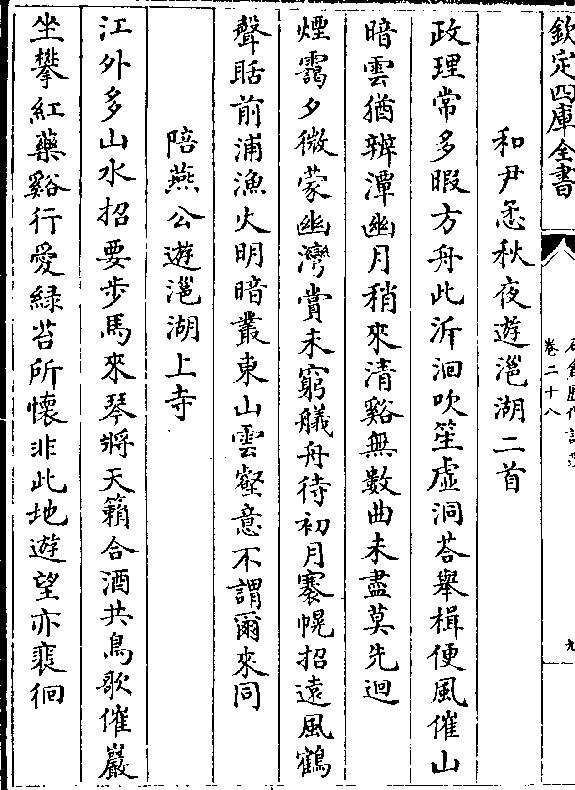 欽定四庫全書
卷二十八
九
和尹懋秋夜遊㴩湖二首
政理常多暇方舟此泝洄吹笙虛洞荅舉楫便風催山
暗雲猶辨潭幽月稍來清谿無數曲未盡莫先迴
煙靄夕微蒙幽灣賞未窮艤舟待初月褰幌招遠風鶴
聲聒前浦漁火明暗叢東山雲壑意不謂爾來同
陪燕公遊㴩湖上寺
江外多山水招要步馬來琴將天籟合酒共鳥歌催巖
坐攀紅藥谿行愛緑苔所懷非此地遊望亦裴徊